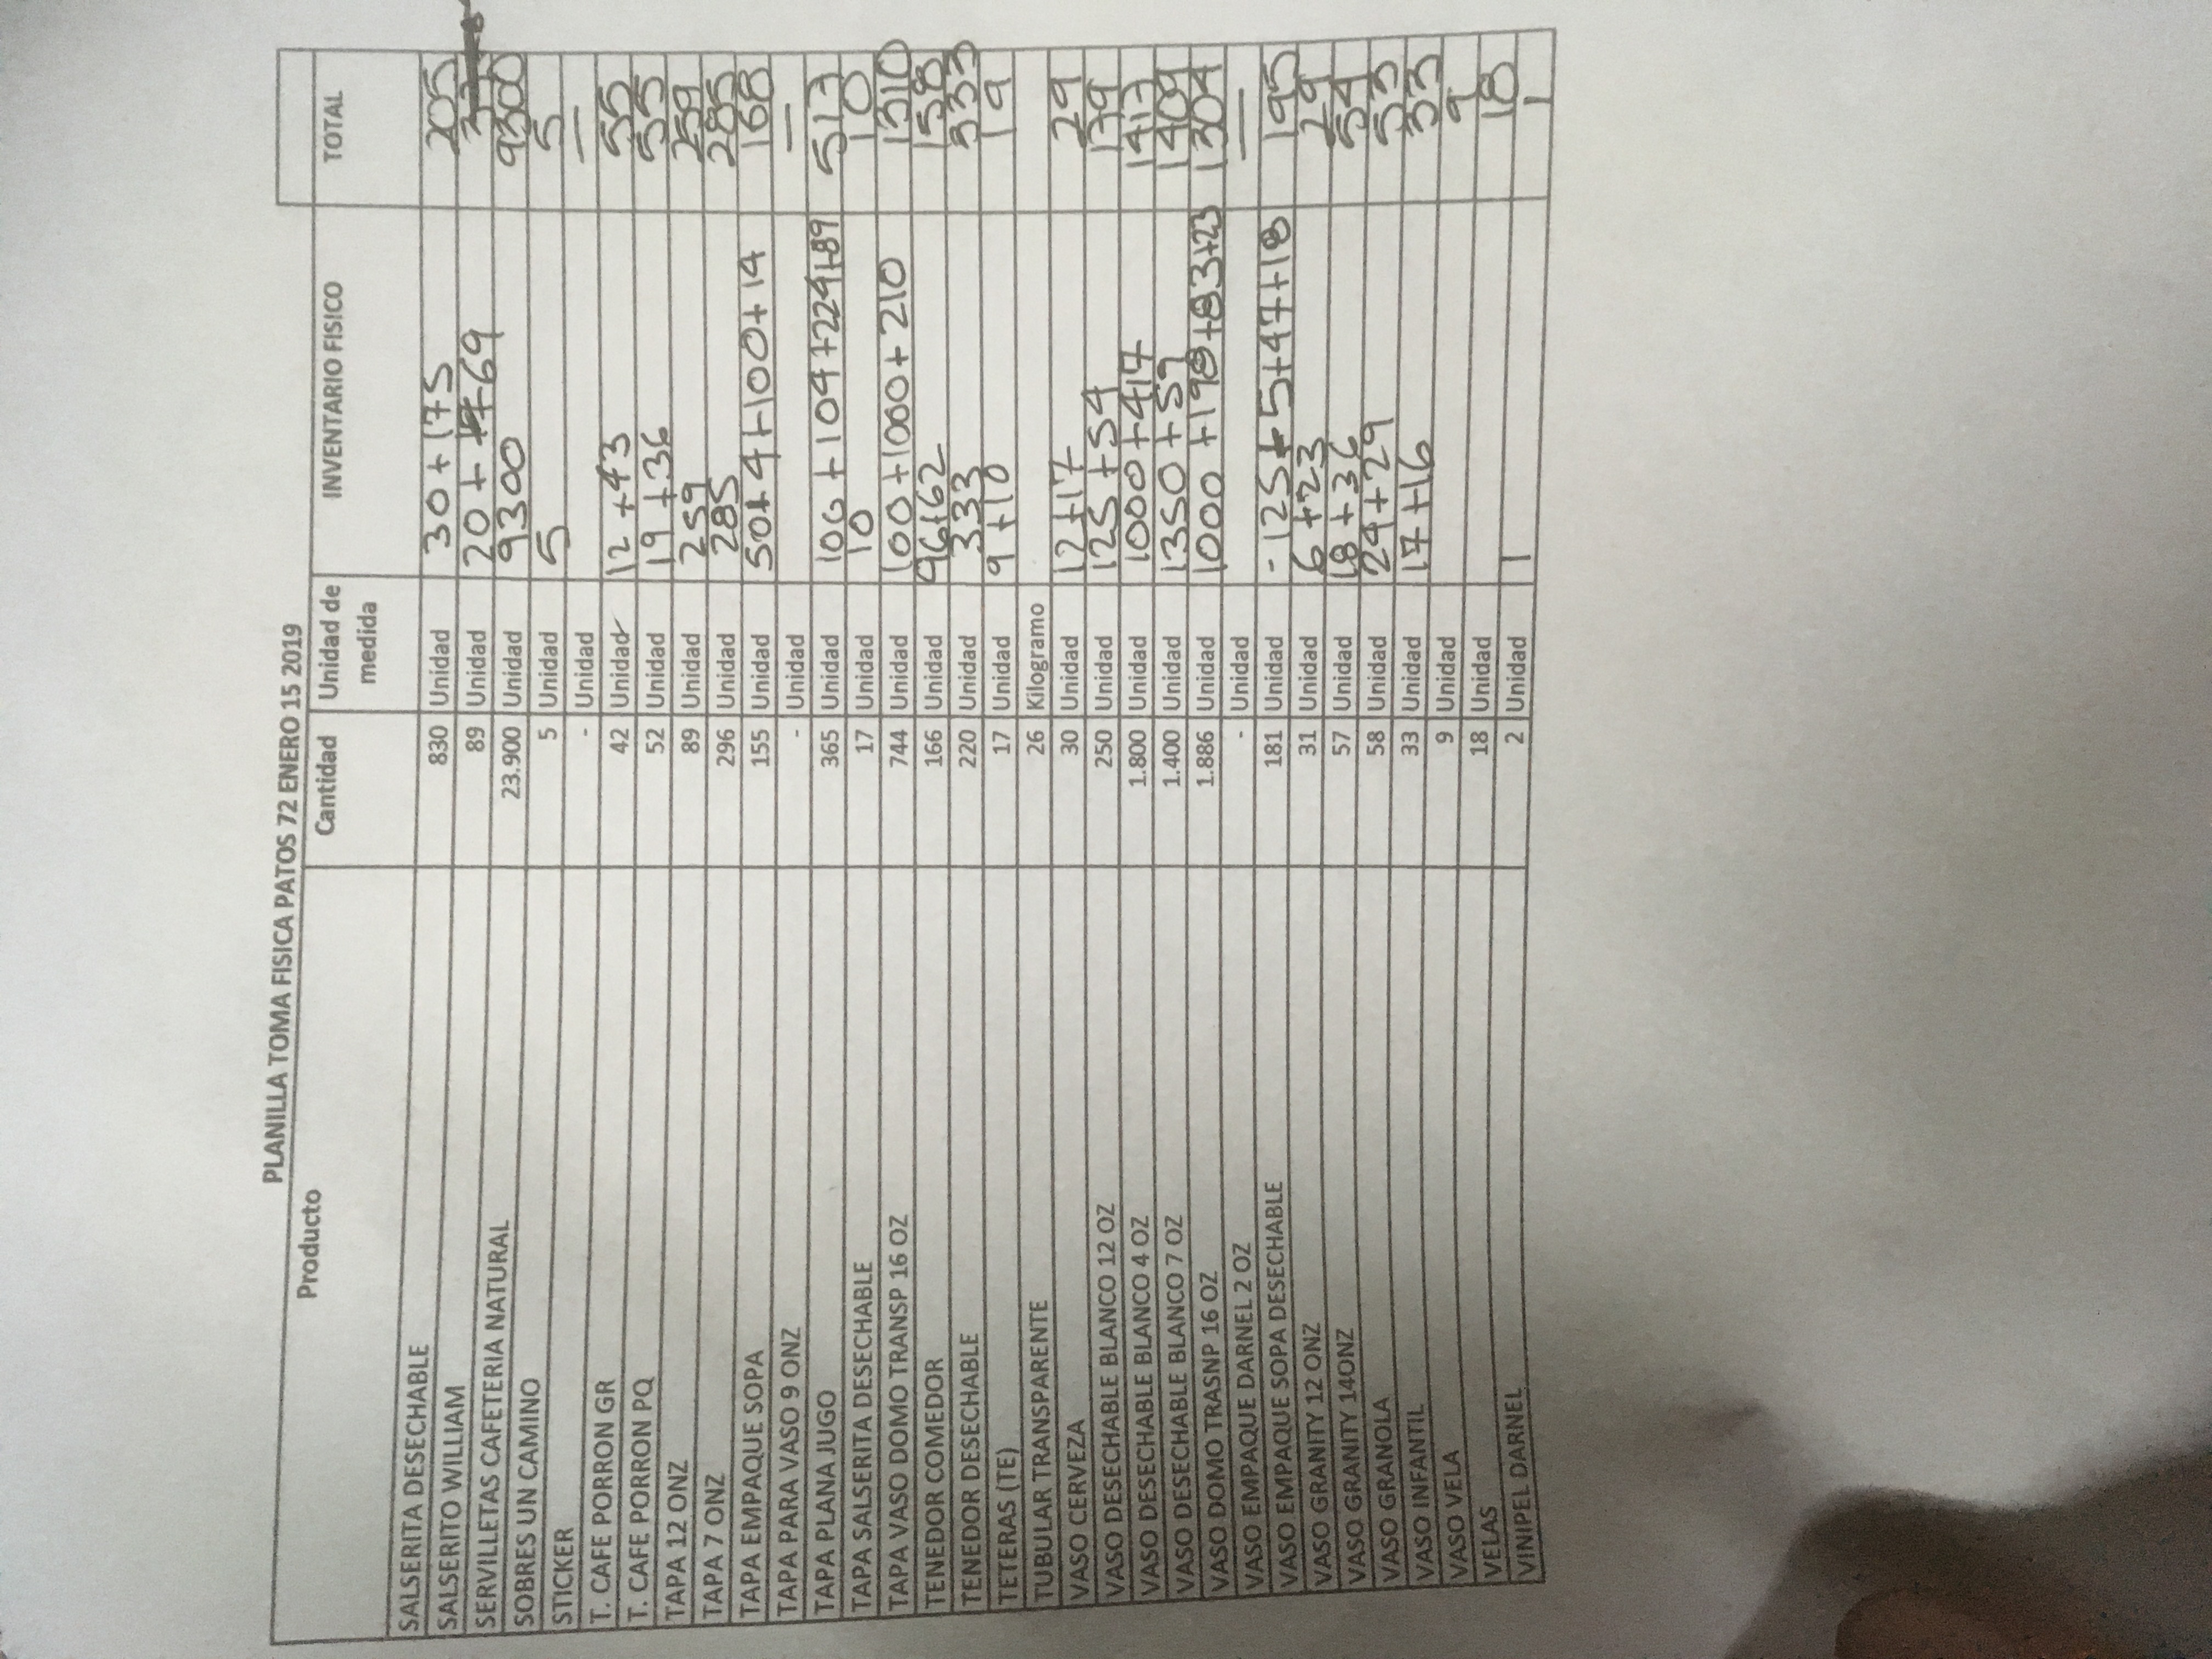 PLANILLA TOMA FISICA PATOS 72 ENERO 15 2019
Producto Cantidad Unidad de medida INVENTARIO FISICO TOTAL
SALSERITA DESECHABLE 830 Unidad 30+175 205
SALSERITO WILLIAM 89 Unidad 20+ 69
SERVILLETAS CAFETERIA NATURAL 23.900 Unidad 9300 9300
SOBRES UN CAMINO 5 Unidad 5 5
STICKER - Unidad —
T. CAFE PORRON GR 42 Unidad 12+43 55
T. CAFE PORRON PQ 52 Unidad 19+36 55
TAPA 12 ONZ 89 Unidad 259 259
TAPA 7 ONZ 296 Unidad 285 285
TAPA EMPAQUE SOPA 155 Unidad 50+4+100+14 168
TAPA PARA VASO 9 ONZ - Unidad —
TAPA PLANA JUGO 365 Unidad 100+104+224+89 517
TAPA SALSERITA DESECHABLE 17 Unidad 10 10
TAPA VASO DOMO TRANSP 16 OZ 744 Unidad 100+1000+210 1310
TENEDOR COMEDOR 166 Unidad 96+62 158
TENEDOR DESECHABLE 220 Unidad 333 333
TETERAS (TE) 17 Unidad 9+10 19
TUBULAR TRANSPARENTE 26 Kilogramo
VASO CERVEZA 30 Unidad 12+17 29
VASO DESECHABLE BLANCO 12 OZ 250 Unidad 125+54 179
VASO DESECHABLE BLANCO 4 OZ 1.800 Unidad 1000+417 1417
VASO DESECHABLE BLANCO 7 OZ 1.400 Unidad 1350+59 1409
VASO DOMO TRASNP 16 OZ 1.886 Unidad 1000+198+83+23 1304
VASO EMPAQUE DARNEL 2 OZ - Unidad —
VASO EMPAQUE SOPA DESECHABLE 181 Unidad -125+5+47+18 195
VASO GRANITY 12 ONZ 31 Unidad 6+23 29
VASO GRANITY 14ONZ 57 Unidad 18+36 54
VASO GRANOLA 58 Unidad 24+29 53
VASO INFANTIL 33 Unidad 17+16 33
VASO VELA 9 Unidad 9
VELAS 18 Unidad 18
VINIPEL DARNEL 2 Unidad 1 1